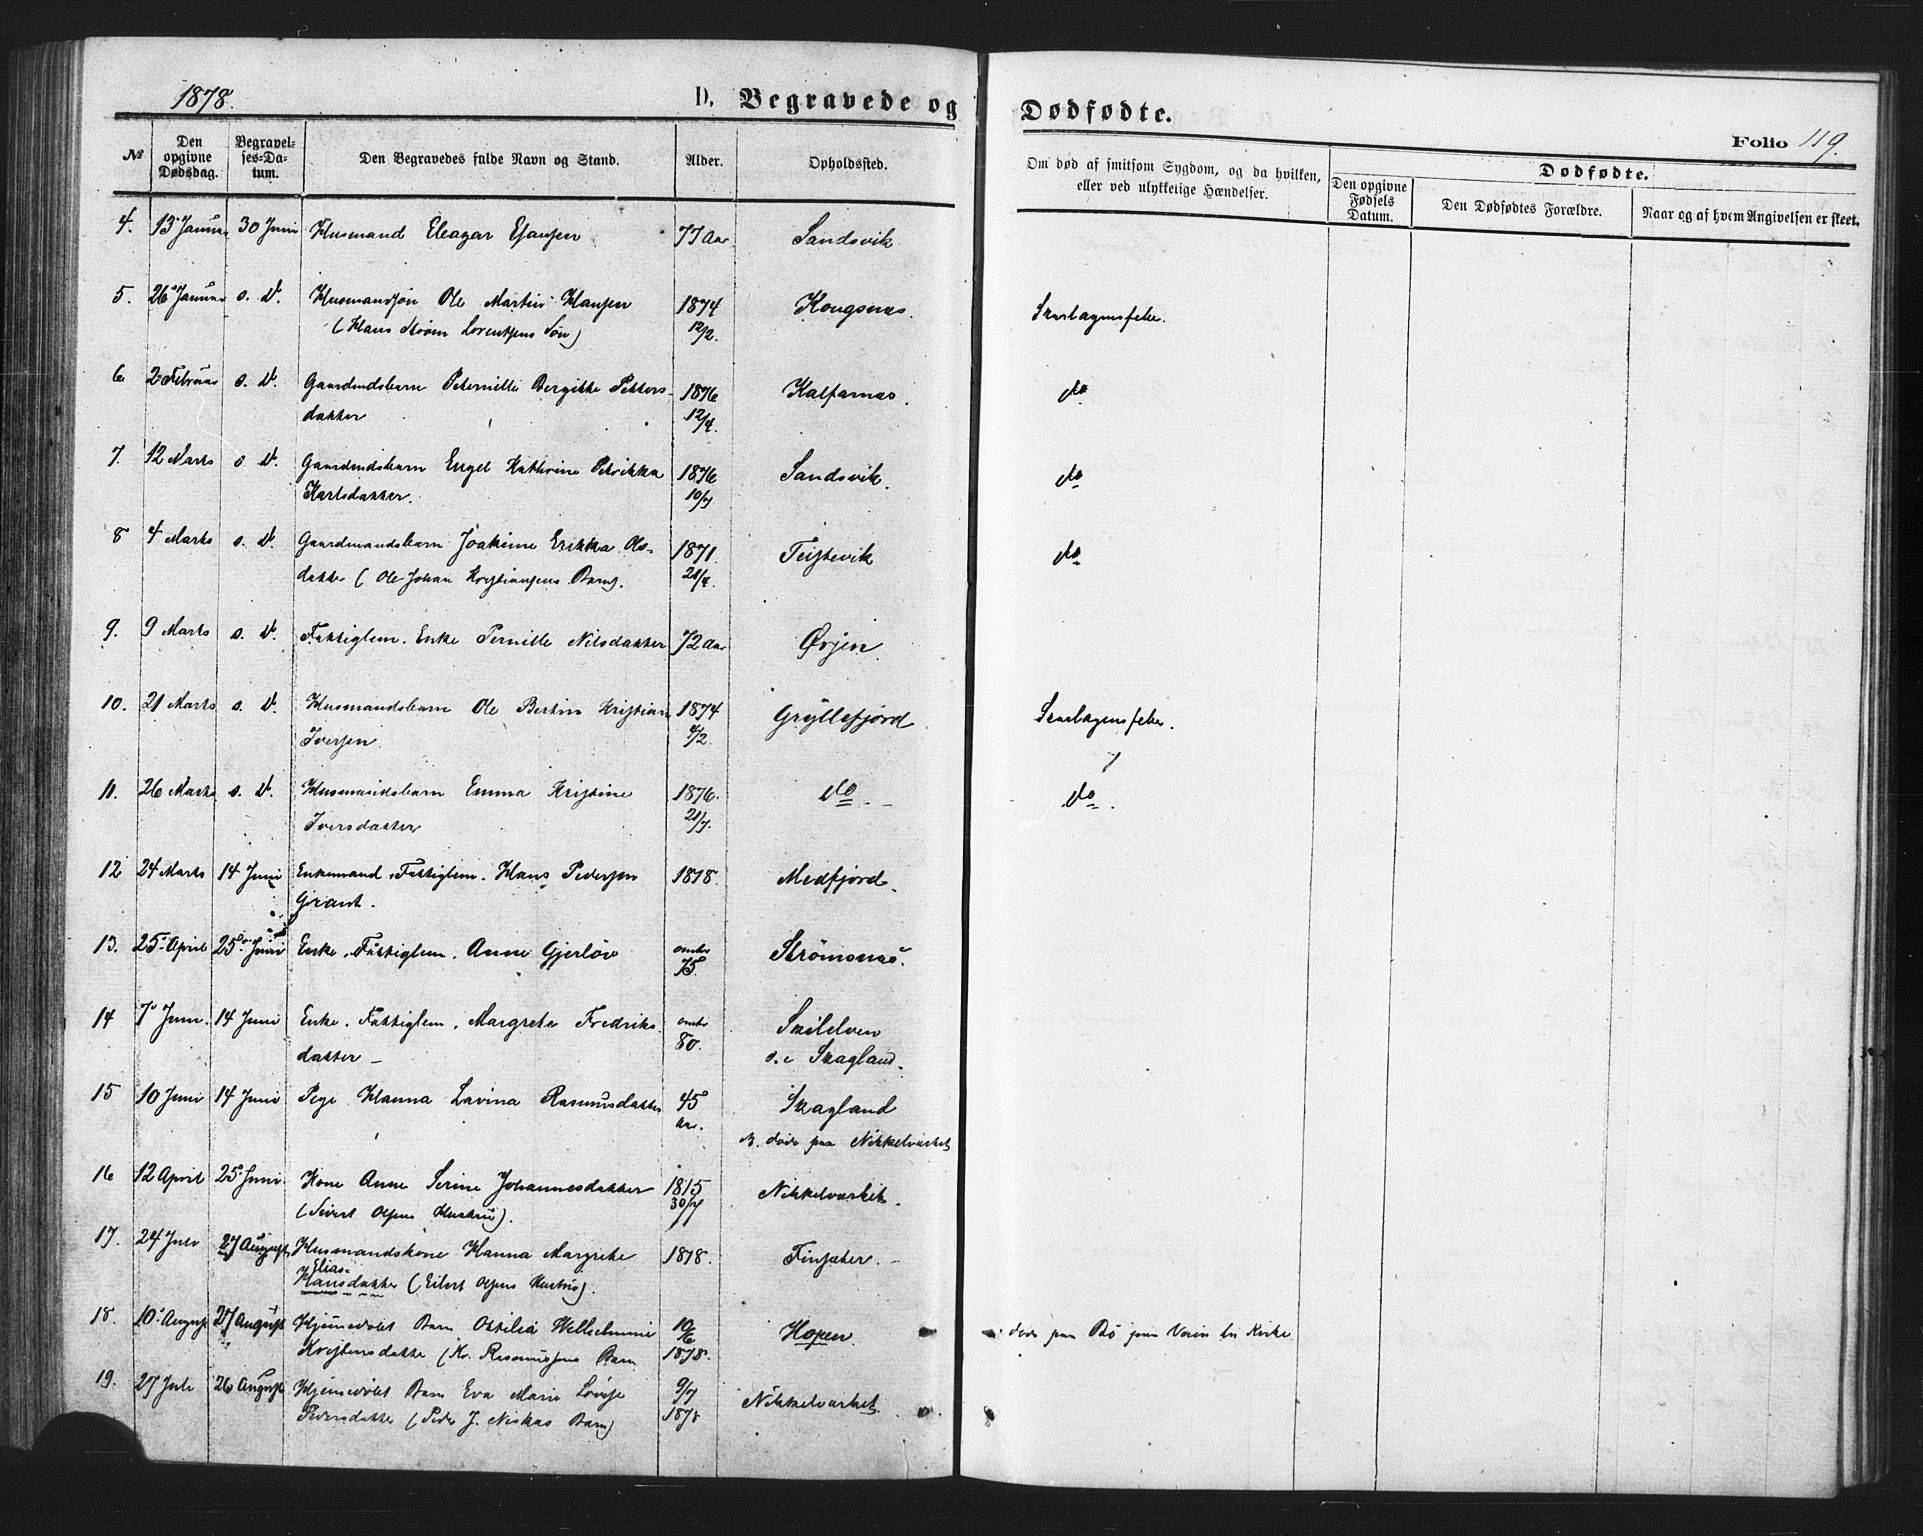 1878.
D. Begravede og Dødfødte.
Folio 119.
№ Den opgivne Dødsdag. Begravelses-Datum. Den Begravedes fulde Navn og Stand. Alder. Opholdssted. Om død af smitsom Sygdom, og da hvilken, eller ved ulykkelige Hændelser. Dødfødte. Den opgivne Fødsels Datum. Den Dødfødtes Forældre. Naar og af hvem Angivelsen er skeet.
4. 13 Januar 30 Juni Husmand Eleazar Esausen 77 Aar Sandsvik
5. 26 Januar s. D. Husmandssøn Ole Martin Hansen 1874 Kongsnes. Skarlagensfeber.
(Hans Strøm Lorentsens Søn) 12/2.
6 2 Februar s. D. Gaardmdsbarn Peternille Bergitte Petters- 1876 Kalfarnes. do
datter 12/4.
7. 12 Marts s. D. Gaardmdsbarn Engel Kathrine Petrikka 1876 Sandsvik. do
Karlsdatter. 10/7
8 4 Marts s. D. Gaardmandsbarn Joakime Erikka Ols- 1871. Teistevik do
datter (Ole Johan Kristiansens Barn). 21/4.
9. 9 Marts s. D. Fattiglem. Enke Pernille Nilsdatter 72 Aar Ørjen
10. 21 Marts s. D. Husmandsbarn Ole Bertin Kristian 1874 Gryllefjord. Skarlagensfeber.
Iversen. 4/2.
11. 26 Marts s. D. Husmandsbarn Emma Kristine 1876. do. do.
Iversdatter 21/7.
12 24 Marts 14 Juni Enkemand, Fattiglem. Hans Pedersen 1818. Medfjord.
Grant.
13. 25 April 25 Juni Enke, Fattiglem. Anne Gjerløv omtr Strømsnes.
75.
14 7 Juni. 14 Juni Enke. Fattiglem. Margrete Fredriks- omtr Skilelven
datter 80. s. c Skagland.
15 10 Juni 14 Juni Pige Hanna Lavina Rasmusdatter 45 Skagland
Aar. døde paa Nikkelværket
16 12 April 25 Juni. Kone Anne Serine Johannesdatter 1815 Nikkelværket.
(Sivert Olsens Hustru). 30/
17. 24 Juli 27 August Husmandskone Hanna Margrete 1818. Finsæter.
Elias-
Hansdatter (Eilert Olsens Hustru).
18. 10 August 27 August Hjemmedøbt Barn Ottilia Wilhelmine 10/6 Hopen døde paa Bø
Kristensdatter (Kr. Rasmussens Barn 1878.
19. 27 Juli 26 August Hjemmedøbt Barn Eva Marie Lovise 9/7 Nikkelværket.
Pedersdatter (Peder J. Niskas Barn) 1878